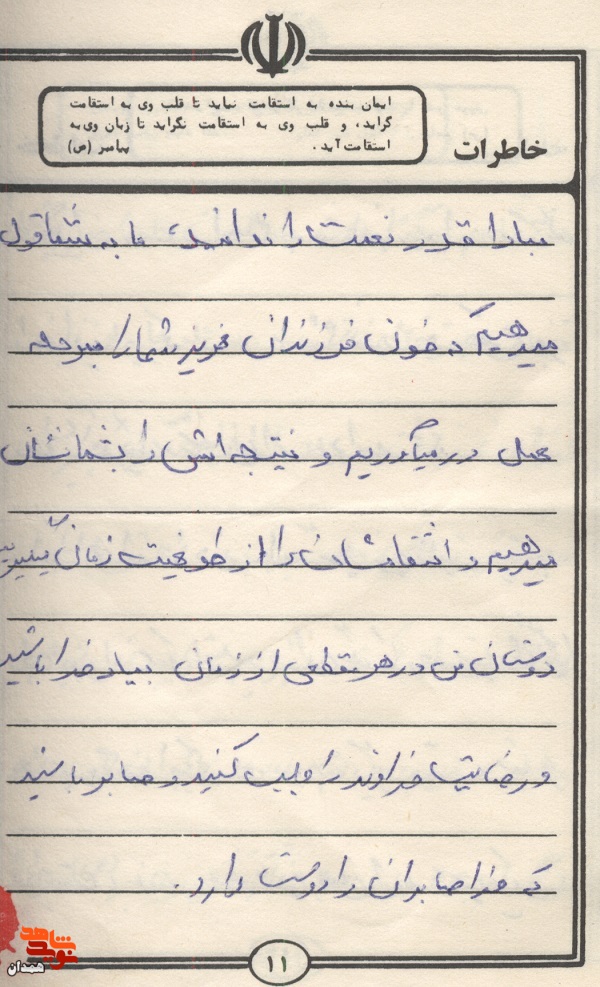 ایمان بنده به استقامت نیاید تا قلب وی به استقامت
گراید، و قلب وی به استقامت نگراید تا زبان وی به
استقامت آید. پیامبر (ص)
خاطرات
مبادا قدر نعمت را ندانید، ما به شما قول
میدهیم که خون فرزندان عزیز شما را بمرحله
عمل در میآوریم و نتیجه اش را بشما نشان
میدهیم و انتقامشان را از طاغوت زمان
دوستان من در هر مقطعی از زمان بیاد خدا باشید
و رضایت خداوند را جلب کنید و صابر باشید
که خدا صابران را دوست دارد.
۱۱
نوید شاهد
همدان